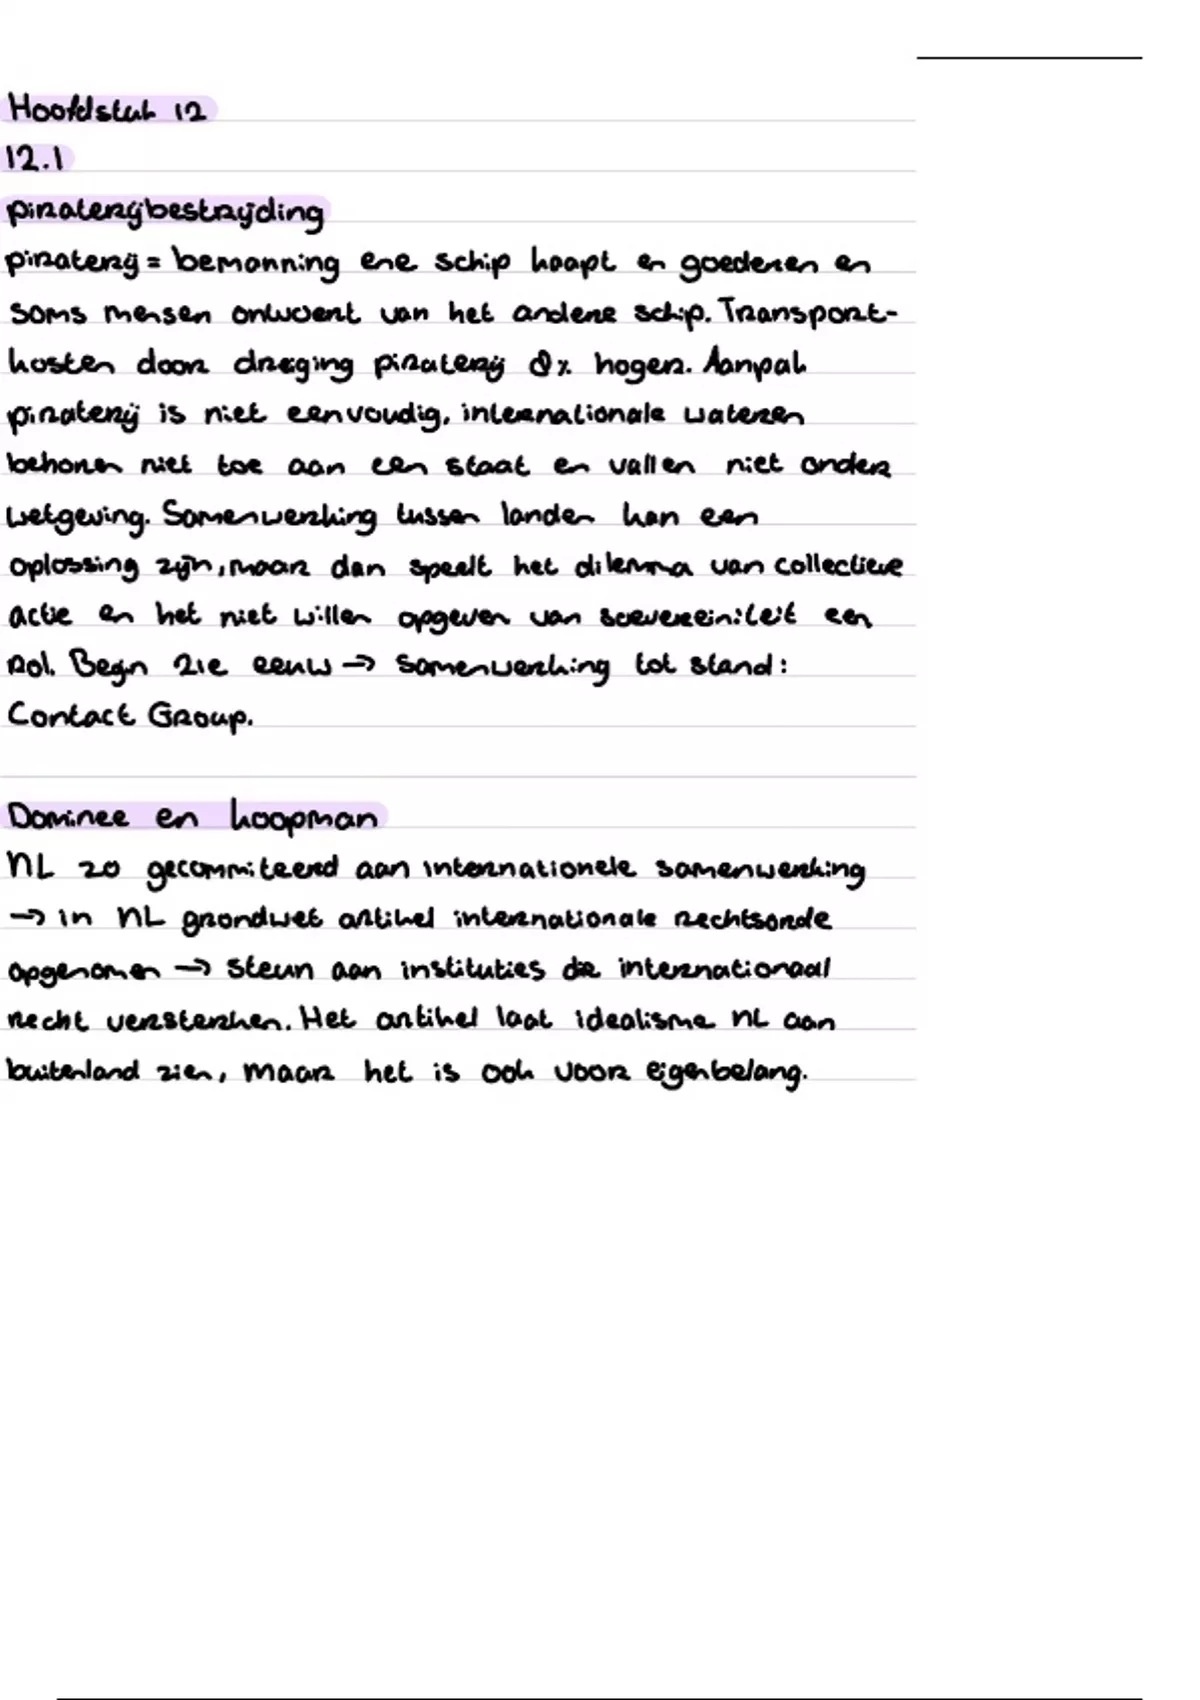 Hoofdstuk 12
12.1
piraterijbestrijding
piraterij = bemanning ene schip kaapt en goederen en
soms mensen ontvoert van het andere schip. Transport-
kosten door dreiging piraterij 8% hoger. Aanpak
piraterij is niet eenvoudig, internationale wateren
behoren niet toe aan een staat en vallen niet onder
wetgeving. Samenwerking tussen landen kan een
oplossing zijn, maar dan speelt het dilemma van collectieve
actie en het niet willen opgeven van soevereiniteit een
rol. Begin 21e eeuw → samenwerking tot stand:
Contact Group.
Dominee en koopman
NL zo gecommiteerd aan internationele samenwerking
→ in NL grondwet artikel internationale rechtsorde
opgenomen → steun aan instituties die internationaal
recht versterken. Het artikel laat idealisme NL aan
buitenland zien, maar het is ook voor eigenbelang.